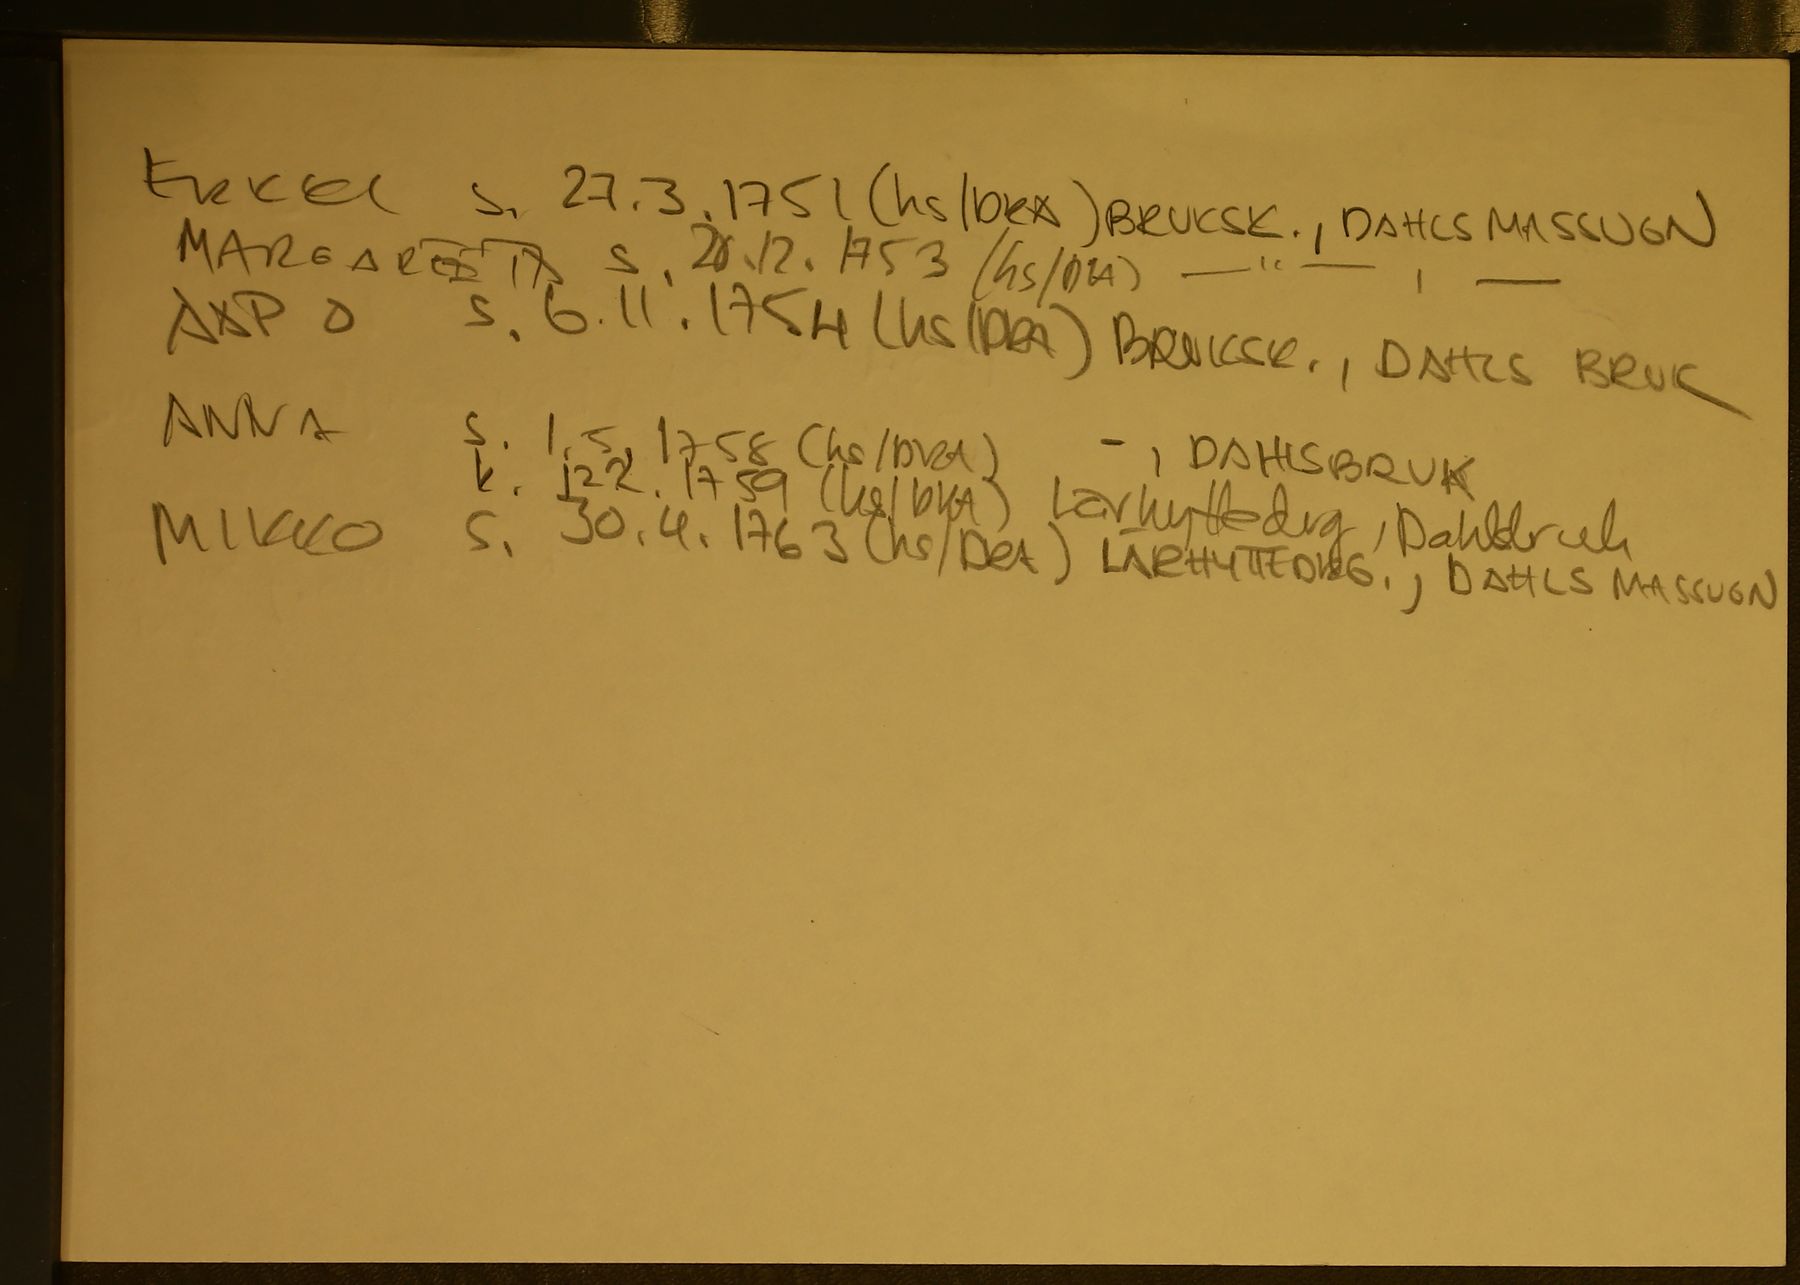 ERKKI s. 27.3.1751 (hs/DKA) BRUKSK., DAHLS MASSUGN
MARGAREETTA s. 20.12.1753 (hs/DKA) —"— , —
AAPO s. 6.11.1754 (hs/DKA) BRUKSK., DAHLS BRUK
ANNA s. 1.5.1758 (hs/DKA) -, DAHLSBRUK
k. 12.2.1759 (hs/DKA) Larhyttedrg, Dahlsbruk
MIKKO s. 30.4.1763 (hs/DKA) LARHYTTEDRG., DAHLS MASSUGN